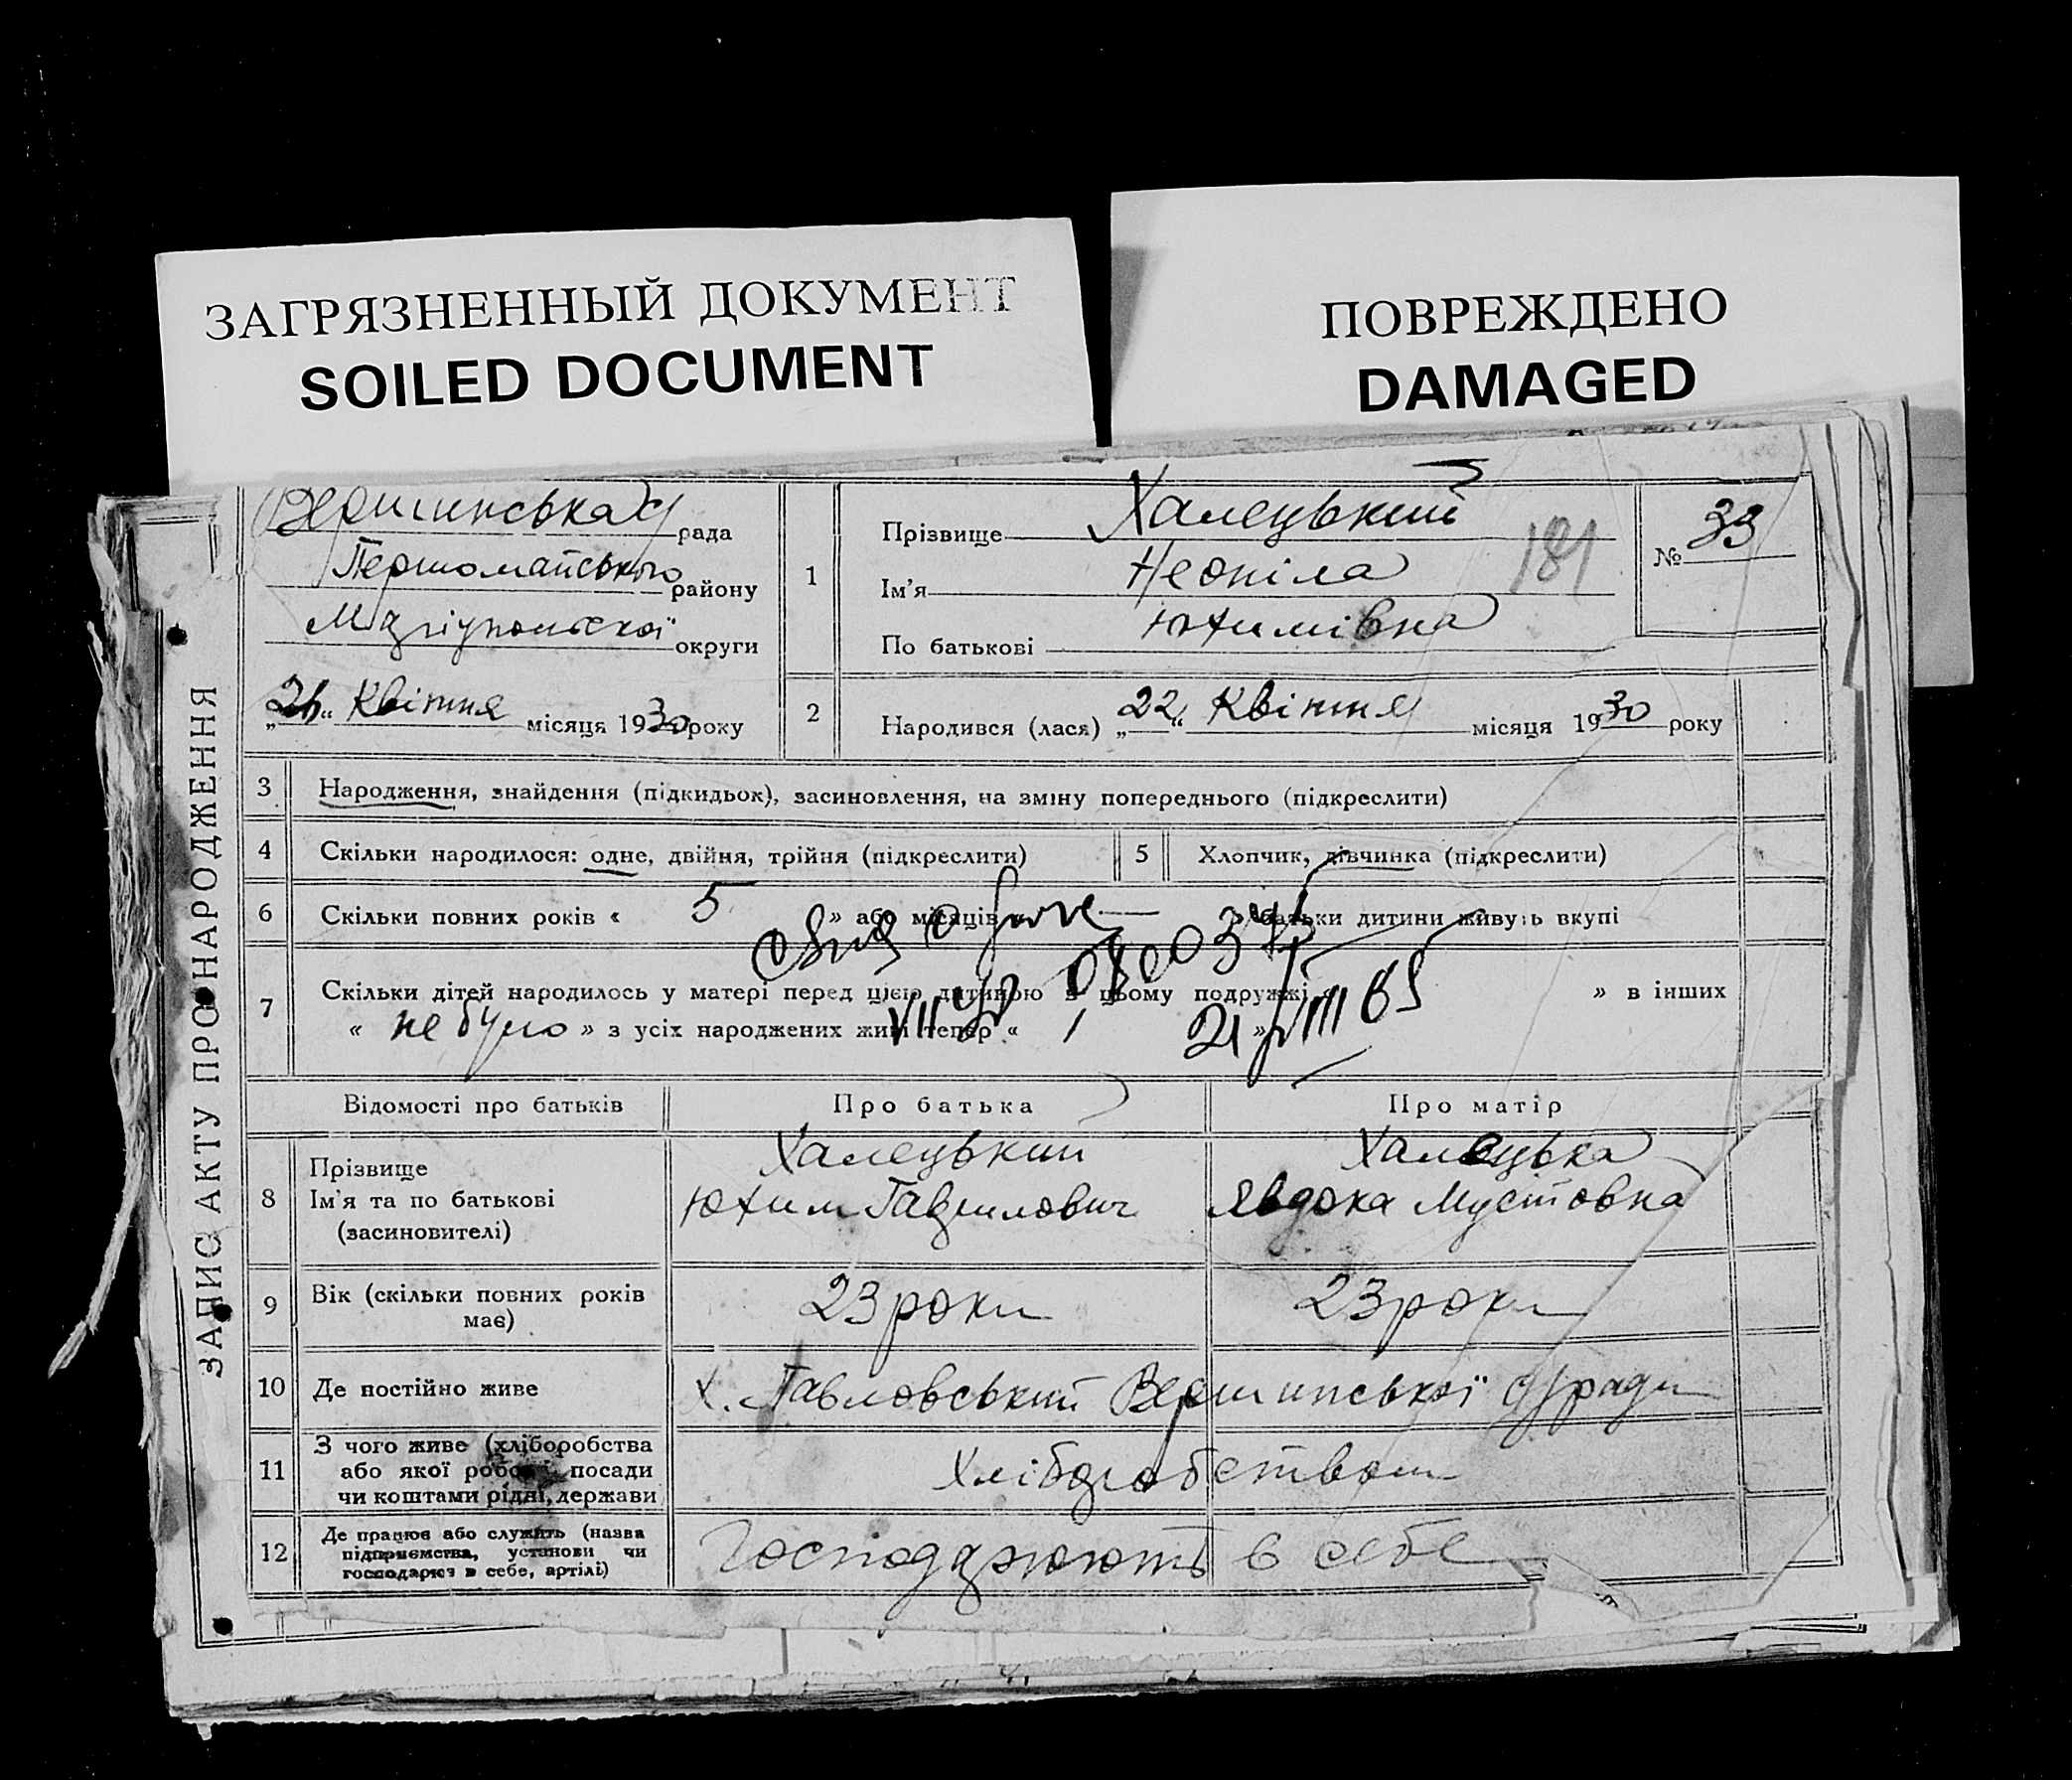 ЗАГРЯЗНЕННЫЙ ДОКУМЕНТ
SOILED DOCUMENT
ПОВРЕЖДЕНО
DAMAGED
ЗАПИС АКТУ ПРО НАРОДЖЕННЯ
Вершинська с/рада
Першомайського району
Маріупольської округи
„26“ Квітня місяця 1930 року
1
Прізвище Халецький
Ім'я Неоніла
По батькові Юхимівна
181
№ 33
2
Народився (лася) „22“ Квітня місяця 1930 року
3 Народження, знайдення (підкидьок), засиновлення, на зміну попереднього (підкреслити)
4 Скільки народилося: одне, двійня, трійня (підкреслити)
5 Хлопчик, дівчинка (підкреслити)
6 Скільки повних років « 5 » або місяців « — » батьки дитини живуть вкупі
7 Скільки дітей народилось у матері перед цією дитиною в цьому подружжі « » в інших
« не було » з усіх народжених живі тепер « 1 »
21 VIII 65
Відомості про батьків
Про батька
Про матір
8
Прізвище
Ім'я та по батькові
(засиновителі)
Халецький
Юхим Гаврилович
Халецька
Явдоха Мустовна
9 Вік (скільки повних років
має)
23 роки
23 роки
10 Де постійно живе
х. Павловський Вершинської с/ради
11
З чого живе (хліборобства
або якої роботи, посади
чи коштами рідні, держави
Хліборобством
12
Де працює або служить (назва
підприємства, установи чи
господарює в себе, артілі)
Господарюють в себе